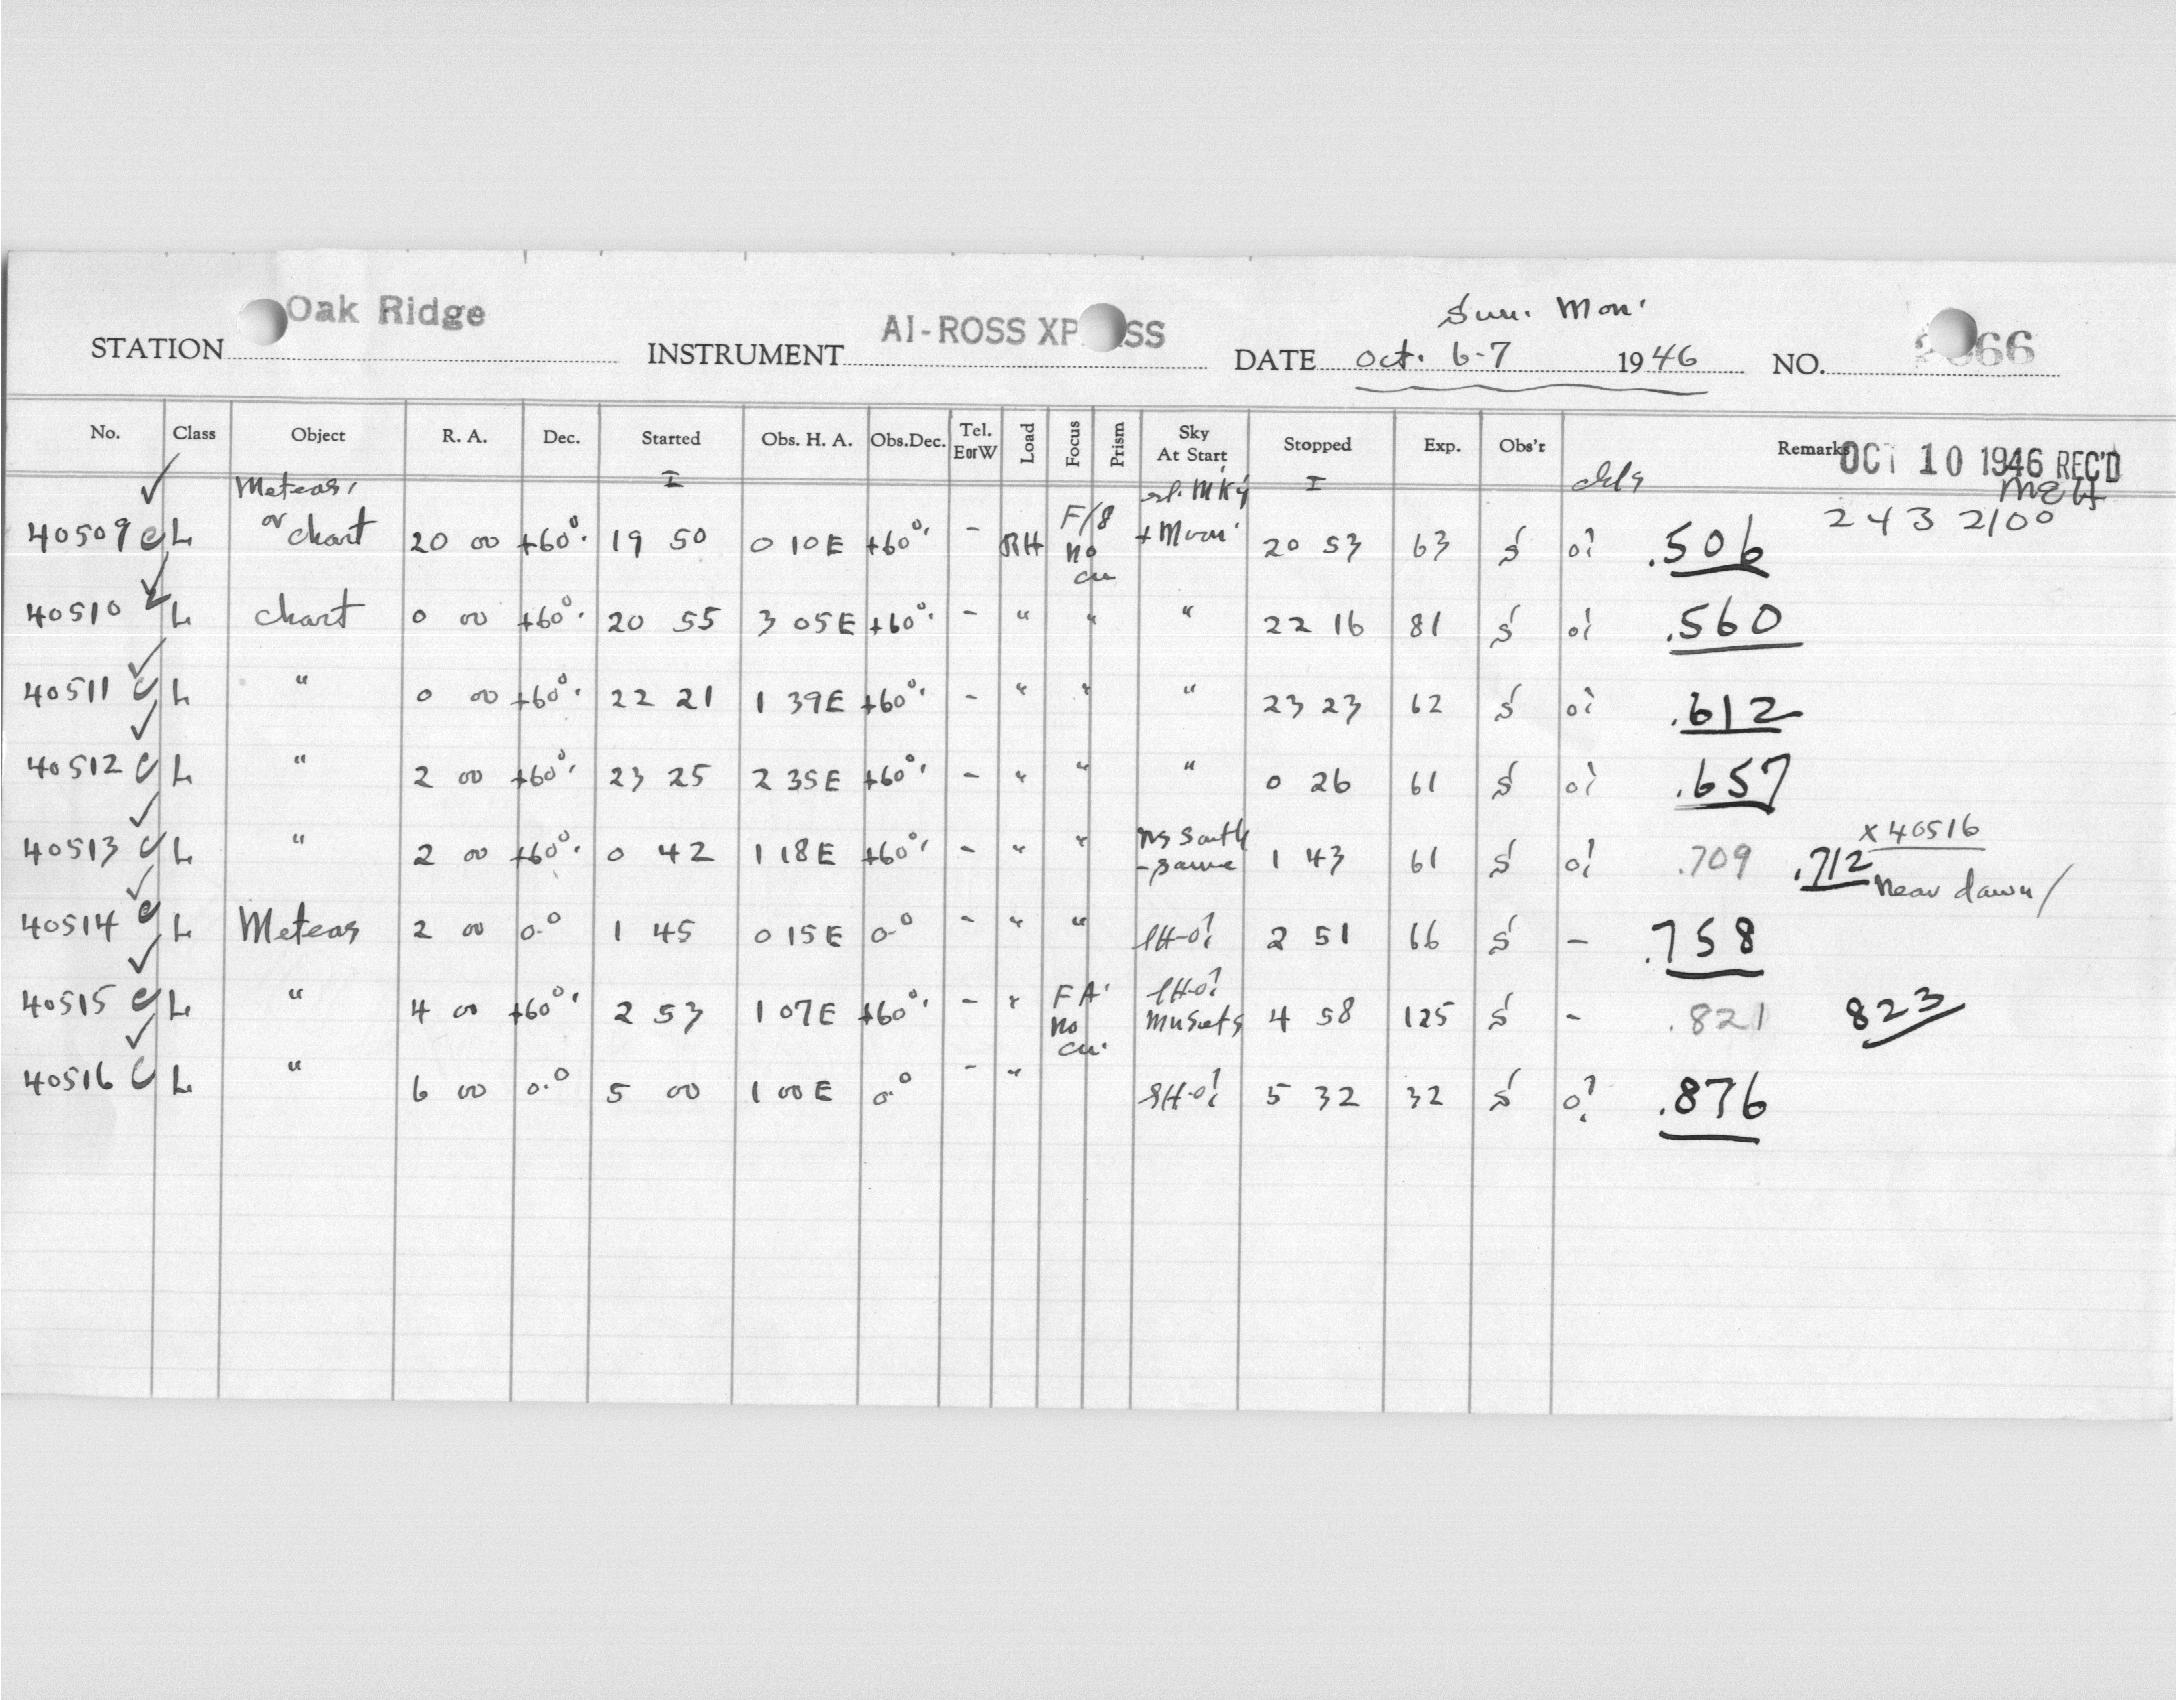 Sun. Mon.
STATION Oak Ridge INSTRUMENT AI-ROSS XP SS DATE Oct. 6-7 1946 NO. 66
No. Class Object R. A. Dec. Started Obs. H. A. Obs.Dec. Tel. EorW Load Focus Prism Sky At Start Stopped Exp. Obs'r Remarks OCT 10 1946 REC'D
I I clds
243 2100
40509 C L Meteors or chart 20 00 +60° 19 50 0 10E +60° - RH F/8 no cu + Moon 20 53 63 S 0? .506
40510 L chart 0 00 +60° 20 55 3 05E +60° - " " " 22 16 81 S 0? .560
40511 C L " 0 00 +60° 22 21 1 39E +60° - " " " 23 23 62 S 0? .612
40512 C L " 2 00 +60° 23 25 2 35E +60° - " " " 0 26 61 S 0? .657
40513 C L " 2 00 +60° 0 42 1 18E +60° - " " South - same 1 43 61 S 0? .709 .712 x 40516
near dawn/
40514 C L Meteors 2 00 0° 1 45 0 15E 0° - " " 2 51 66 S - .758
40515 C L " 4 00 +60° 2 53 1 07E +60° - " FA no cu. 4 58 125 S - .821 823
40516 C L " 6 00 0° 5 00 1 00E 0° - " 5 32 32 S 0? .876